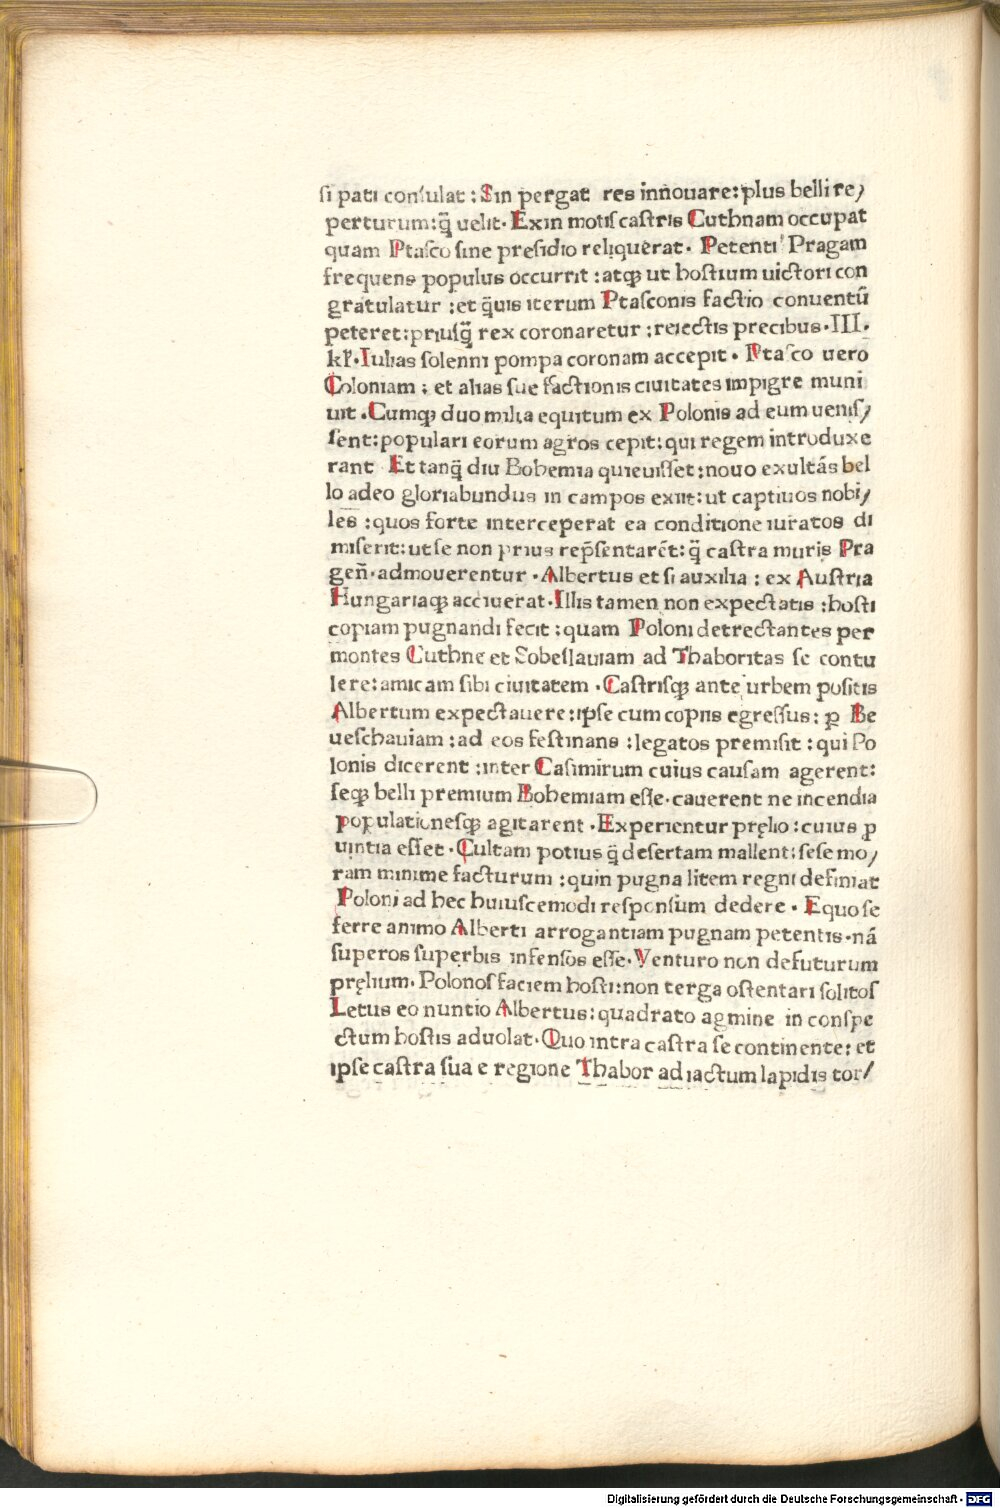 si pati consulat : Sin pergat res innouare: plus belli re/
perturum: q̃ uelit. Exin motis castris Cuthnam occupat
quam Ptasco sine presidio reliquerat. Petenti Pragam
frequens populus occurrit : atqꝫ ut hostium uictori con
gratulatur : et q̃uis iterum Ptasconis factio conuentũ
peteret: priusq̃ rex coronaretur : reiectis precibus. III.
kl̃. Iulias solenni pompa coronam accepit. Ptasco uero
Coloniam : et alias sue factionis ciuitates impigre muni
uit. Cumqꝫ duo milia equitum ex Polonis ad eum uenis/
sent: populari eorum agros cepit: qui regem introduxe
rant Et tanq̃ diu Bohemia quieuisset : nouo exultás bel
lo adeo gloriabundus in campos exiit: ut captiuos nobi/
les : quos forte interceperat ea conditione iuratos di
miserit: ut se non prius rep̃sentarẽt: q̃ castra muris Pra
geñ. admouerentur. Albertus et si auxilia : ex Austria
Hungariaqꝫ acciuerat. Illis tamen non expectatis : hosti
copiam pugnandi fecit : quam Poloni detrectantes per
montes Cuthne et Sobeslauiam ad Thaboritas se contu
lere: amicam sibi ciuitatem. Castrisqꝫ ante urbem positis
Albertum expectauere: ipse cum copiis egressus: ꝑ Be
ueschauiam: ad eos festinans : legatos premisit : qui Po
lonis dicerent : inter Casimirum cuius causam agerent:
seqꝫ belli premium Bohemiam esse. cauerent ne incendia
populationesqꝫ agitarent. Experientur pręlio : cuius ꝓ
uintia esset. Cultam potius q̃ desertam mallent: sese mo/
ram minime facturum : quin pugna litem regni definiat
Poloni ad hec huiuscemodi responsum dedere. Equo se
ferre animo Alberti arrogantiam pugnam petentis. nã
superos superbis infensos esse. Venturo non defuturum
pręlium. Polonos faciem hosti: non terga ostentari solitos
Letus eo nuntio Albertus: quadrato agmine in conspe
ctum hostis aduolat. Quo intra castra se continente: et
ipse castra sua e regione Thabor ad iactum lapidis tor/
Digitalisierung gefördert durch die Deutsche Forschungsgemeinschaft - DFG